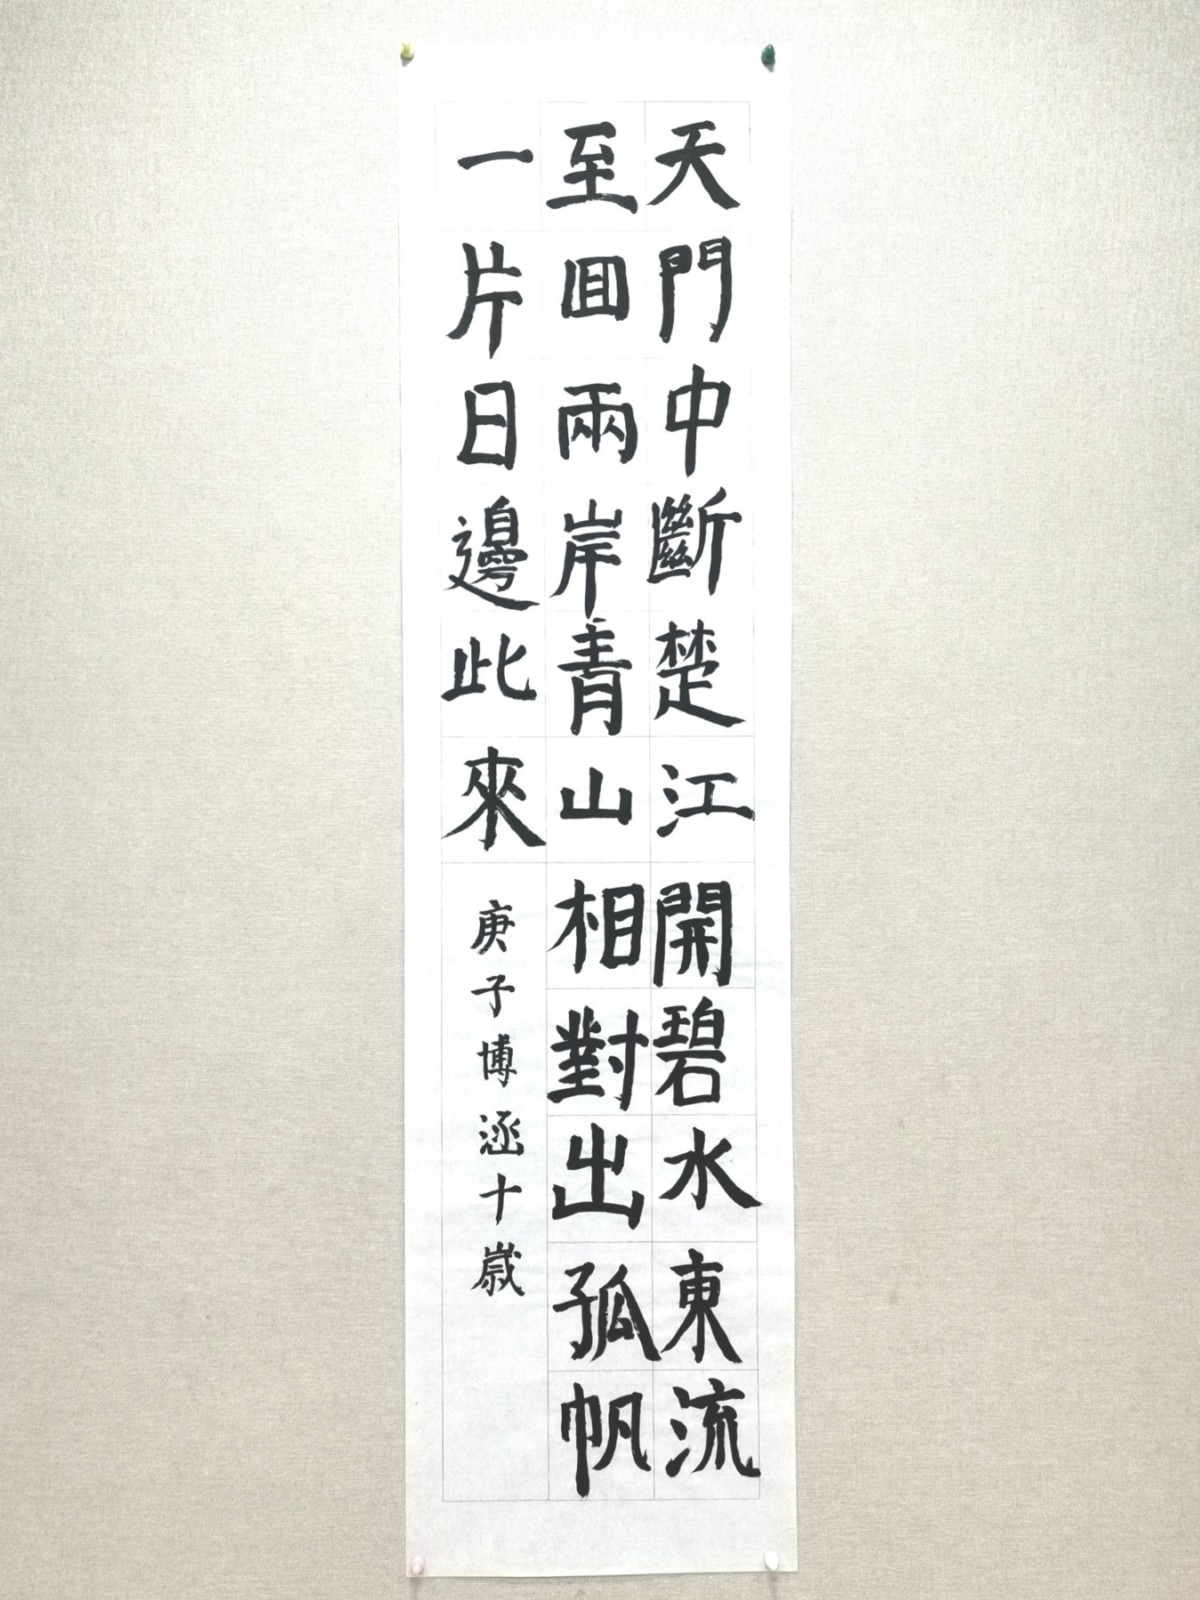 天門中斷楚江開碧水東流
至回兩岸青山相對出孤帆
一片日邊此來
庚子博涵十歲